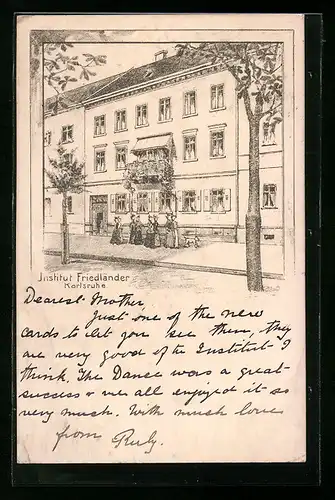 Institut Friedländer
Karlsruhe.
Dearest Mother
Just one of the new
cards to let you see them, they
are very good of the Institut I
think. The Dance was a great
success & we all enjoyed it so
very much. With much love
from Ruby.